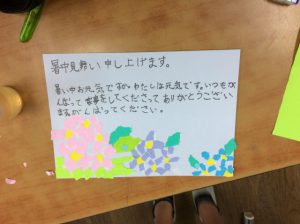 暑中見舞い申し上げます。
暑い中お元気ですか。わたしは元気です。いつもが
んばって家事をしてくださってありがとうござい
ます。がんばってください。